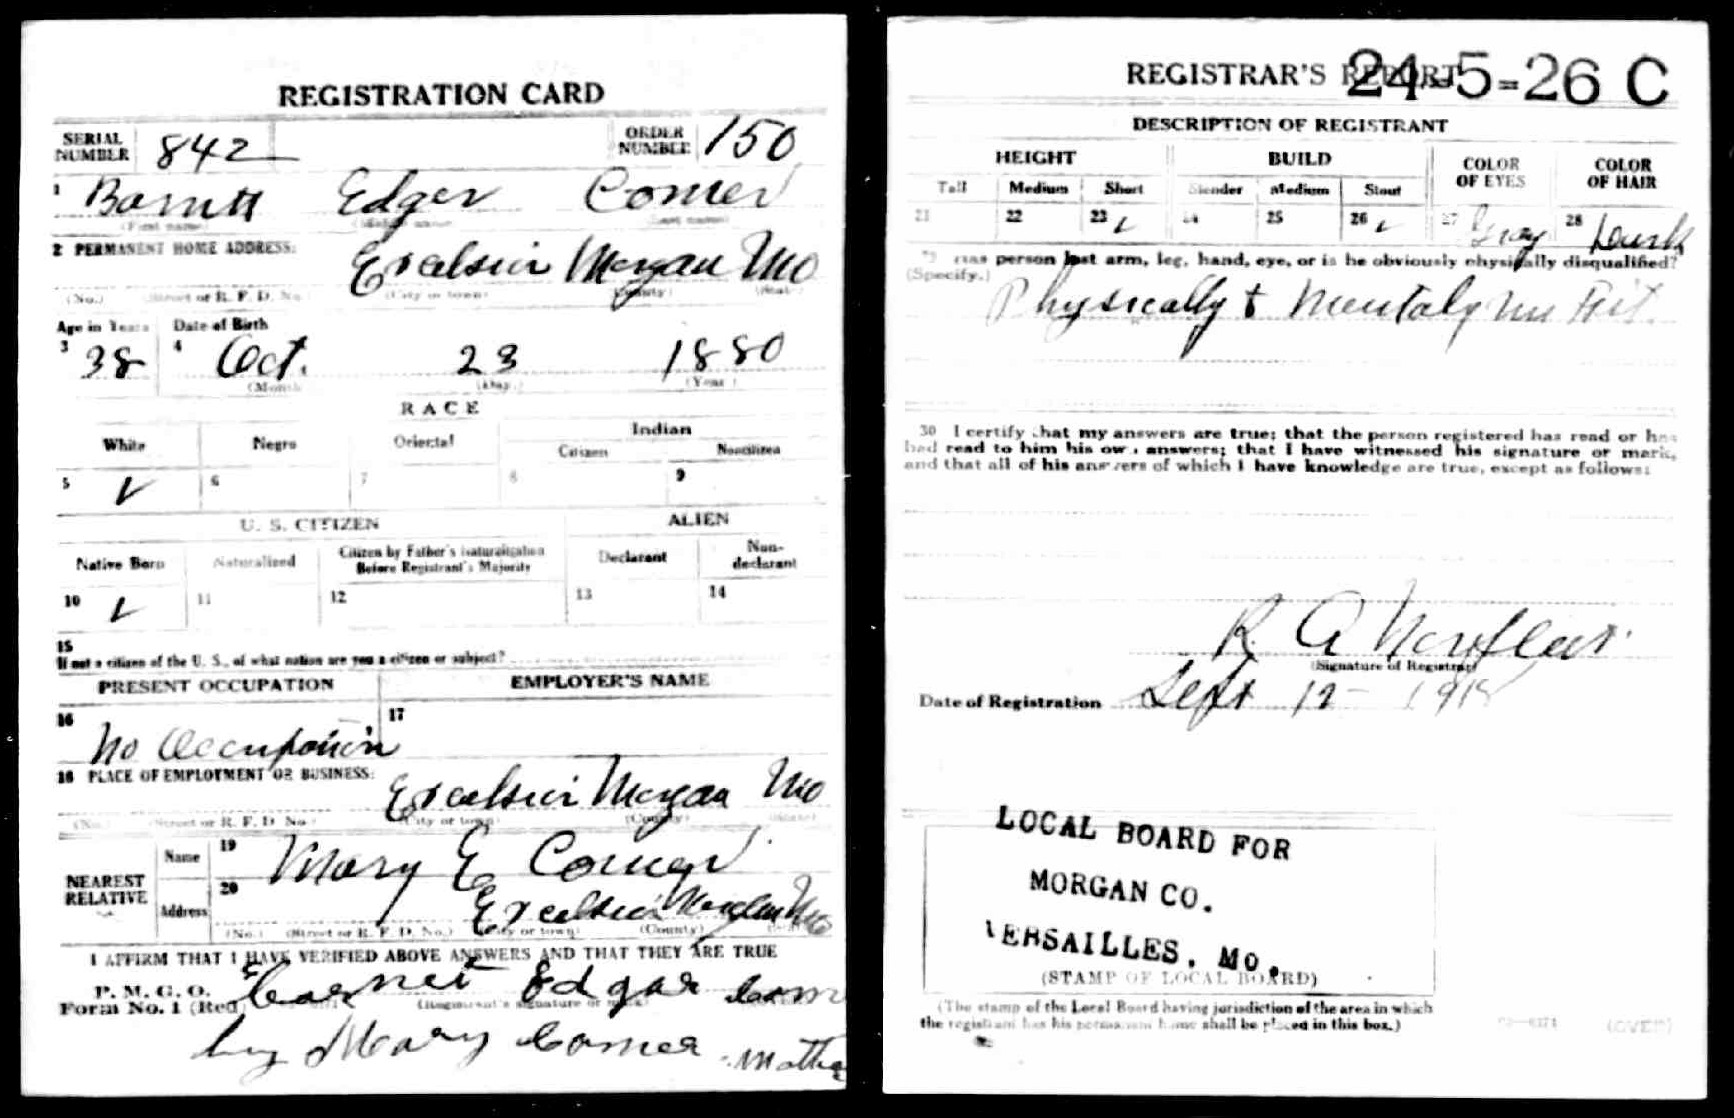 REGISTRATION CARD
SERIAL NUMBER 842 ORDER NUMBER 150
1 Barnett Edger Comer
(First name) (Middle name) (Last name)
2 PERMANENT HOME ADDRESS:
Excelsior Morgan Mo
(No.) (Street or R. F. D. No.) (City or town) (County) (State)
Age in Years Date of Birth
3 38 4 Oct. 23 1880
(Month) (Day.) (Year)
RACE
White Negro Oriental Indian
Citizen Noncitizen
5 ✓ 6 7 8 9
U. S. CITIZEN ALIEN
Native Born Naturalized Citizen by Father's Naturalization Before Registrant's Majority Declarant Non-declarant
10 ✓ 11 12 13 14
15
If not a citizen of the U. S., of what nation are you a citizen or subject?
PRESENT OCCUPATION EMPLOYER'S NAME
16 No Occupation 17
18 PLACE OF EMPLOYMENT OR BUSINESS:
Excelsior Morgan Mo
(No.) (Street or R. F. D. No.) (City or town) (County) (State)
NEAREST RELATIVE
Name 19 Mary E Comer
Address 20 Excelsior Morgan Mo
(No.) (Street or R. F. D. No.) (City or town) (County) (State)
I AFFIRM THAT I HAVE VERIFIED ABOVE ANSWERS AND THAT THEY ARE TRUE
P. M. G. O.
Form No. 1 (Red) Edgar Com
(Registrant's signature or mark)
by Mary Comer Mothe
REGISTRAR'S REPORT 24-5-26 C
DESCRIPTION OF REGISTRANT
HEIGHT BUILD COLOR OF EYES COLOR OF HAIR
Tall Medium Short Slender Medium Stout
21 22 23 ✓ 24 25 26 ✓ 27 Gray 28 Dark
29 Has person lost arm, leg, hand, eye, or is he obviously physically disqualified?
(Specify.) Physically + Mentaly un Fit.
30 I certify that my answers are true; that the person registered has read or has
had read to him his own answers; that I have witnessed his signature or mark,
and that all of his answers of which I have knowledge are true, except as follows:
R. A. Norfleet
(Signature of Registrar)
Date of Registration Sept 12 - 1918
LOCAL BOARD FOR
MORGAN CO.
VERSAILLES, MO.
(STAMP OF LOCAL BOARD)
(The stamp of the Local Board having jurisdiction of the area in which
the registrant has his permanent home shall be placed in this box.)
(OVER)